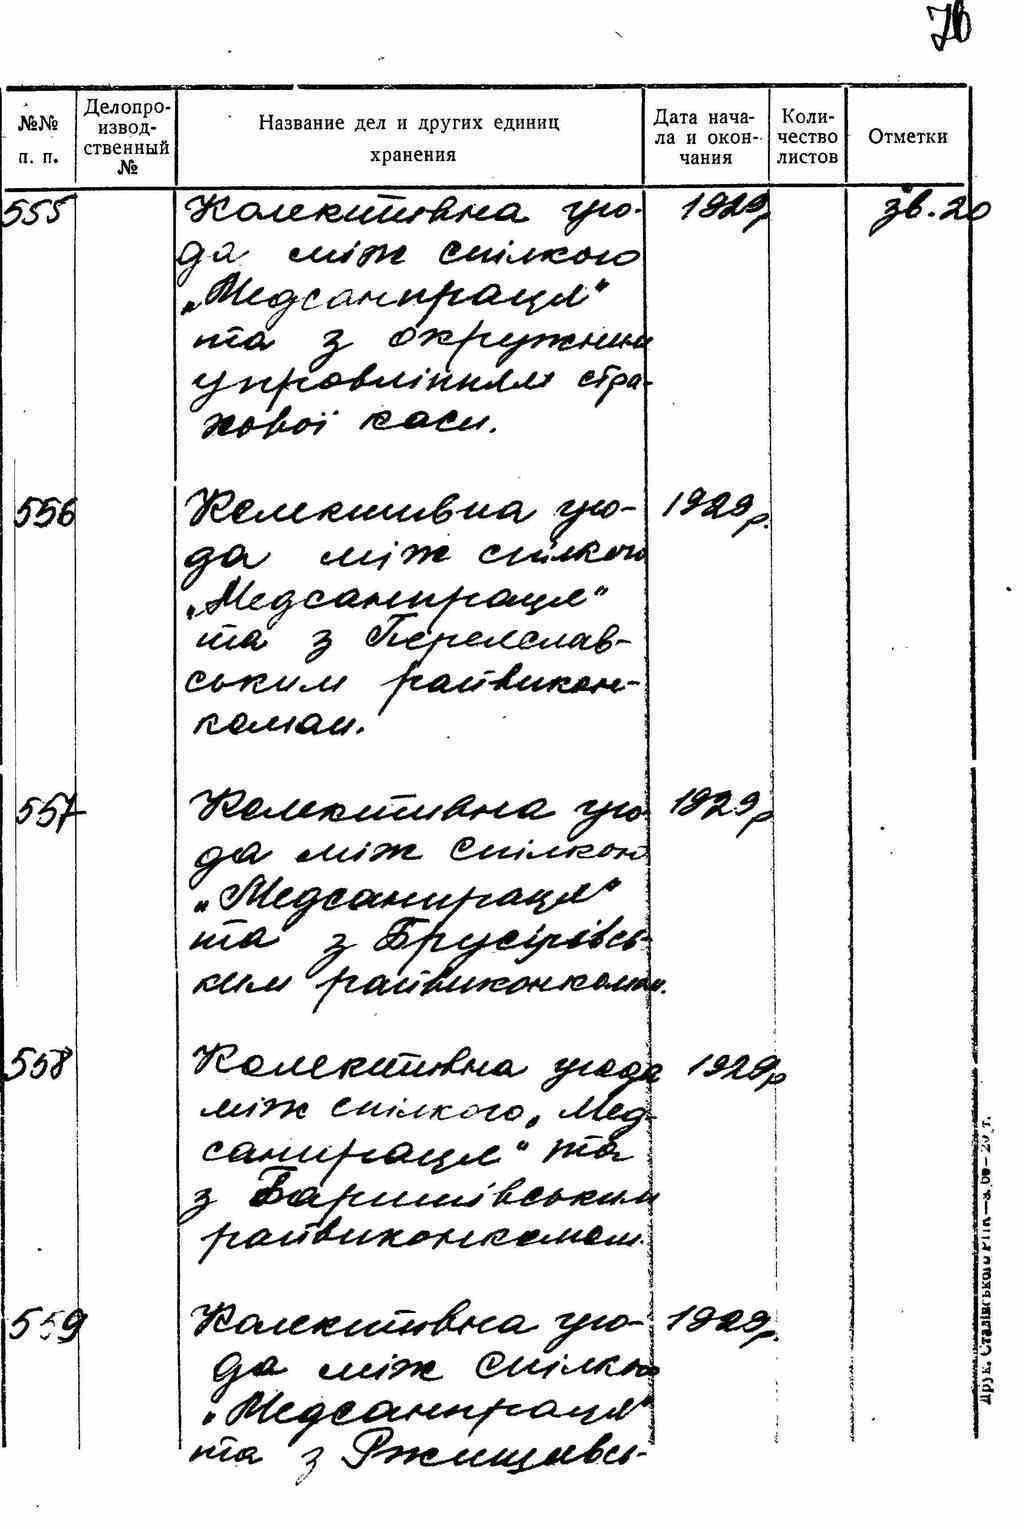 70
№№ п. п.
Делопро-извод-ственный №
Название дел и других единиц хранения
Дата нача-ла и окон-чания
Коли-чество листов
Отметки
555 Колективна уго- 1929р зв. 20
да між спілкою
„Медсанпраця"
та з окружним
управлінням стра-
хової каси.
556 Колективна уго- 1929р.
да між спілкою
„Медсанпраця"
та з Переяслав-
ським райвикон-
комом.
557 Колективна уго- 1929р
да між спілкою
„Медсанпраця"
та з Брусілівсь-
ким райвиконкомом.
558 Колективна угода 1929р
між спілкою „Мед-
санпраця" та
з Баришівським
райвиконкомом.
559 Колективна уго- 1929р.
да між спілкою
„Медсанпраця"
та з Ржищівсь-
Друк. Сталінського